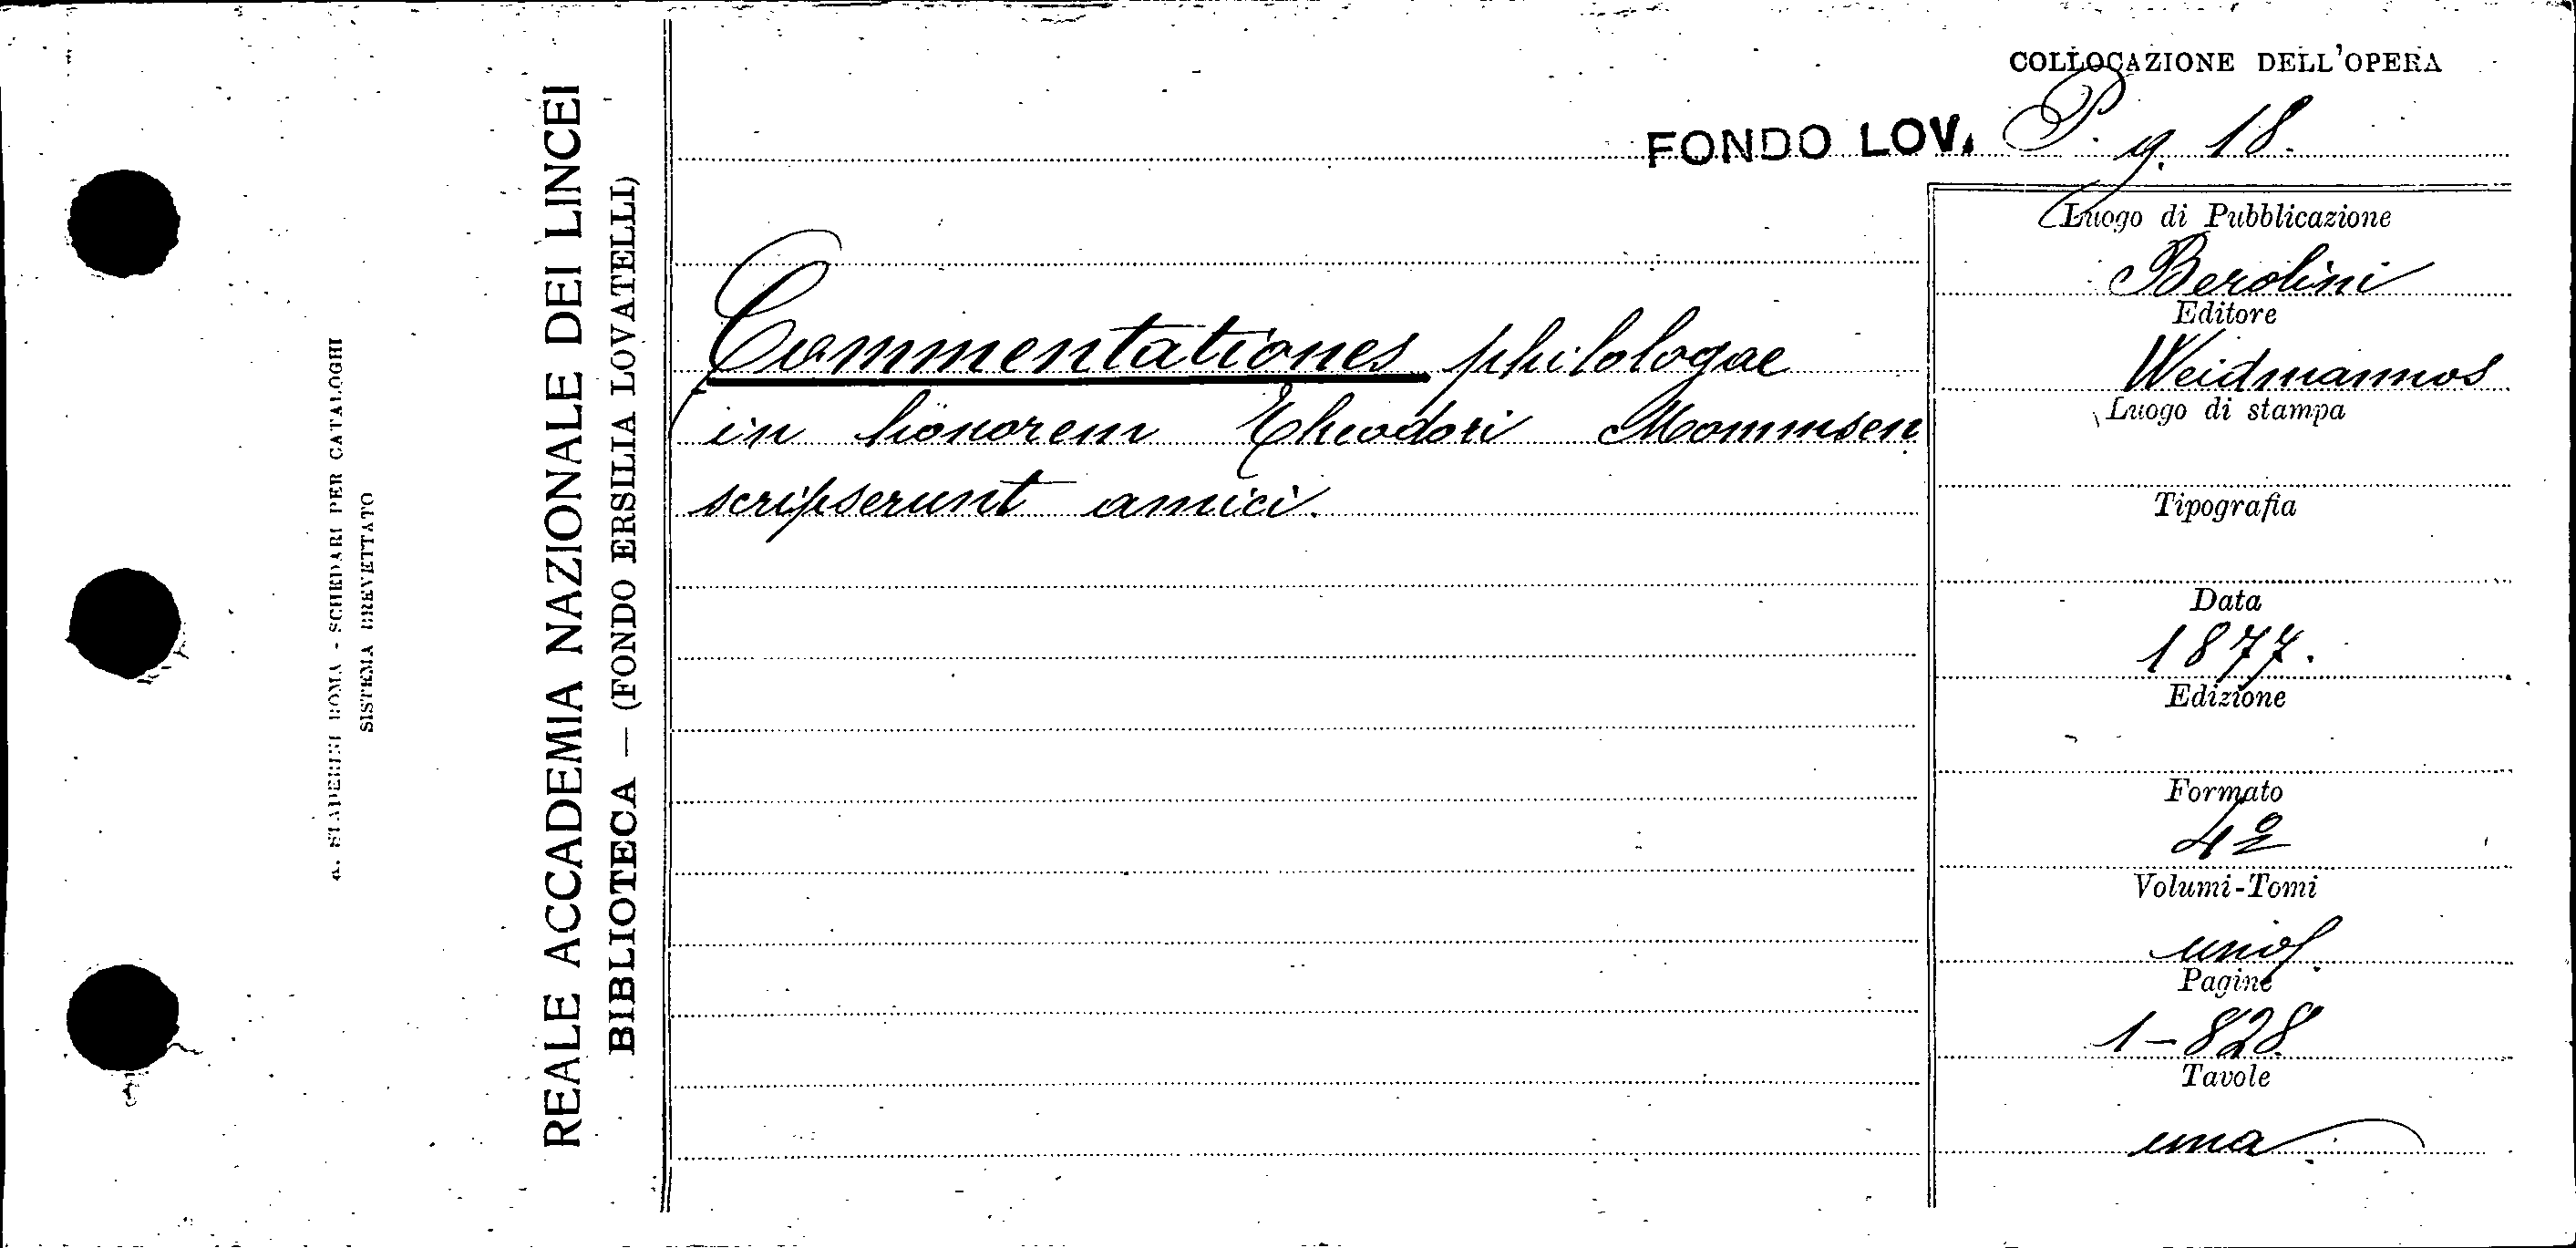 COLLOCAZIONE DELL'OPERA
FONDO LOV. P. g. 18.
Commentationes philologae
in honorem Theodori Mommsen
scripserunt amici.
Luogo di Pubblicazione
Berolini
Editore
Weidmannos
Luogo di stampa
Tipografia
Data
1877.
Edizione
Formato
4º
Volumi-Tomi
uno
Pagine
1-828
Tavole
una
REALE ACCADEMIA NAZIONALE DEI LINCEI
BIBLIOTECA — (FONDO ERSILIA LOVATELLI)
STADERINI ROMA - SCHEDARI PER CATALOGHI
SISTEMA BREVETTATO